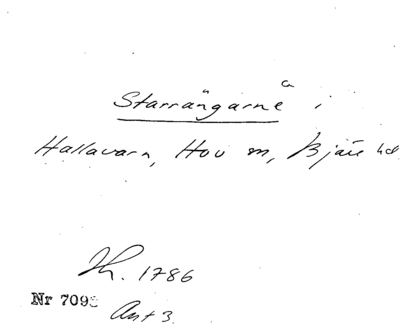 Starrängarne i
Hallavara, Hov sn, Bjäre hd
Th. 1786
Nr 7098
Avt 3.